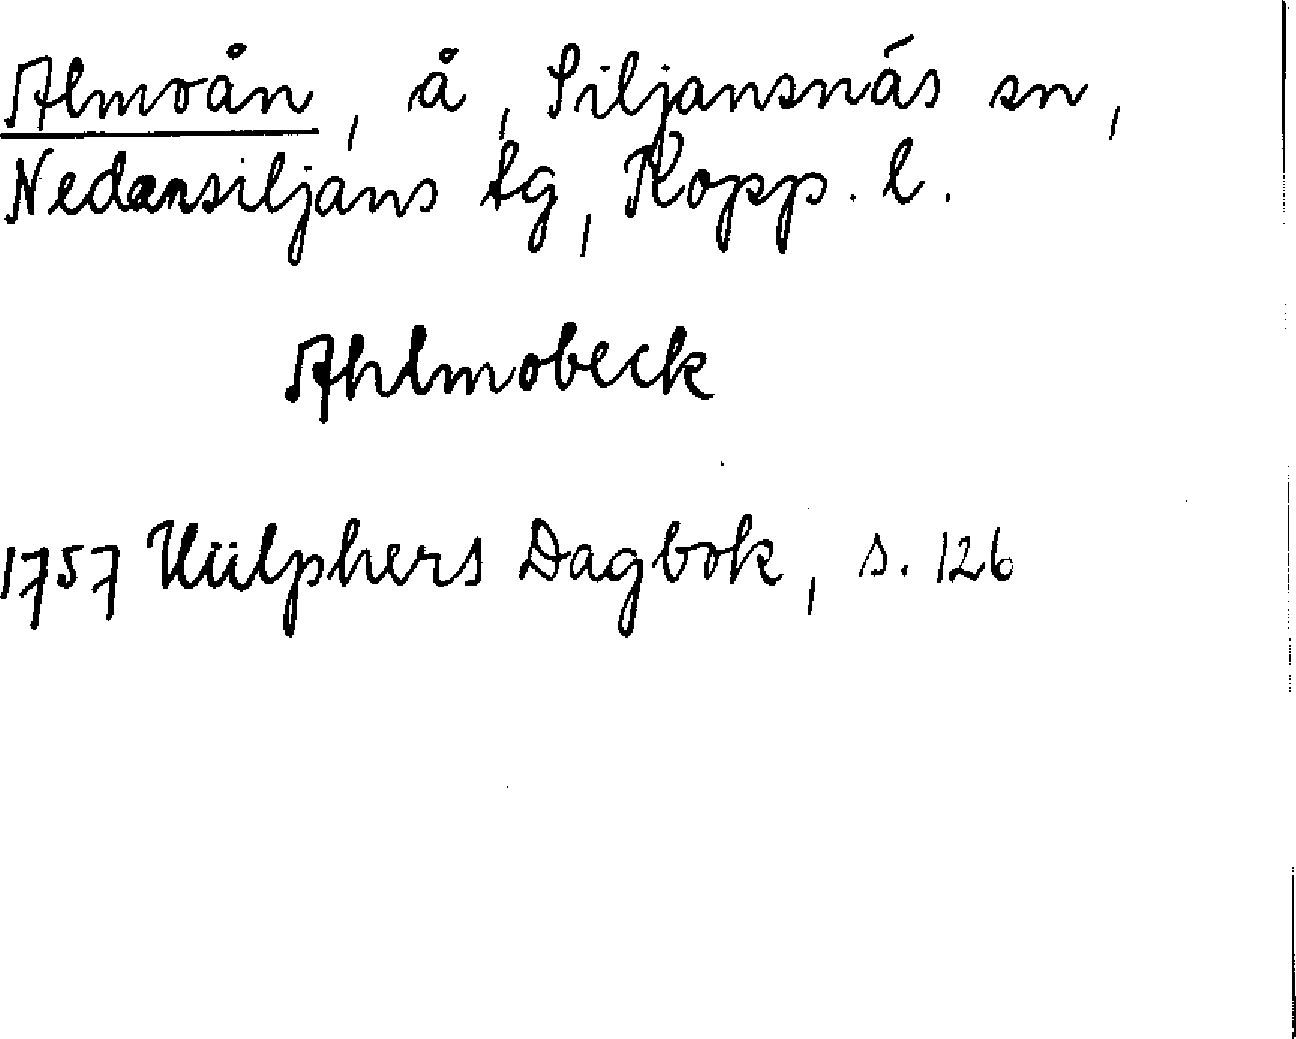 Almoån, å, Siljansnäs sn,
Nedansiljans tg, Kopp. l.
Ahlmobeck
1757 Hülphers Dagbok, s. 126